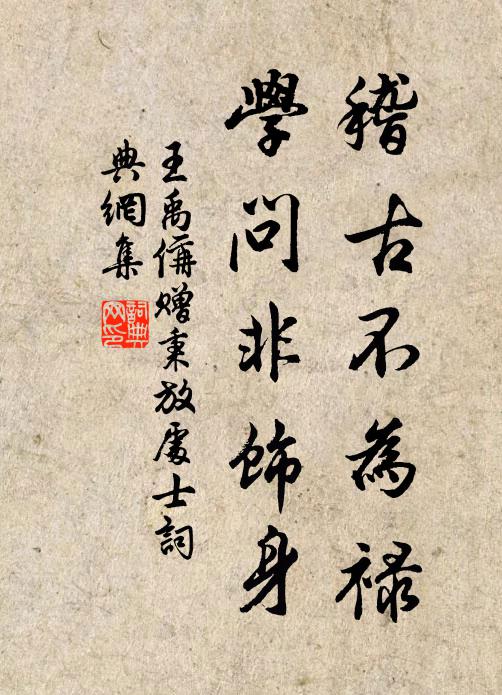 稽古不為祿
學問非飾身
王禹偁贈秉放處士詞
典網集
詞典
网印